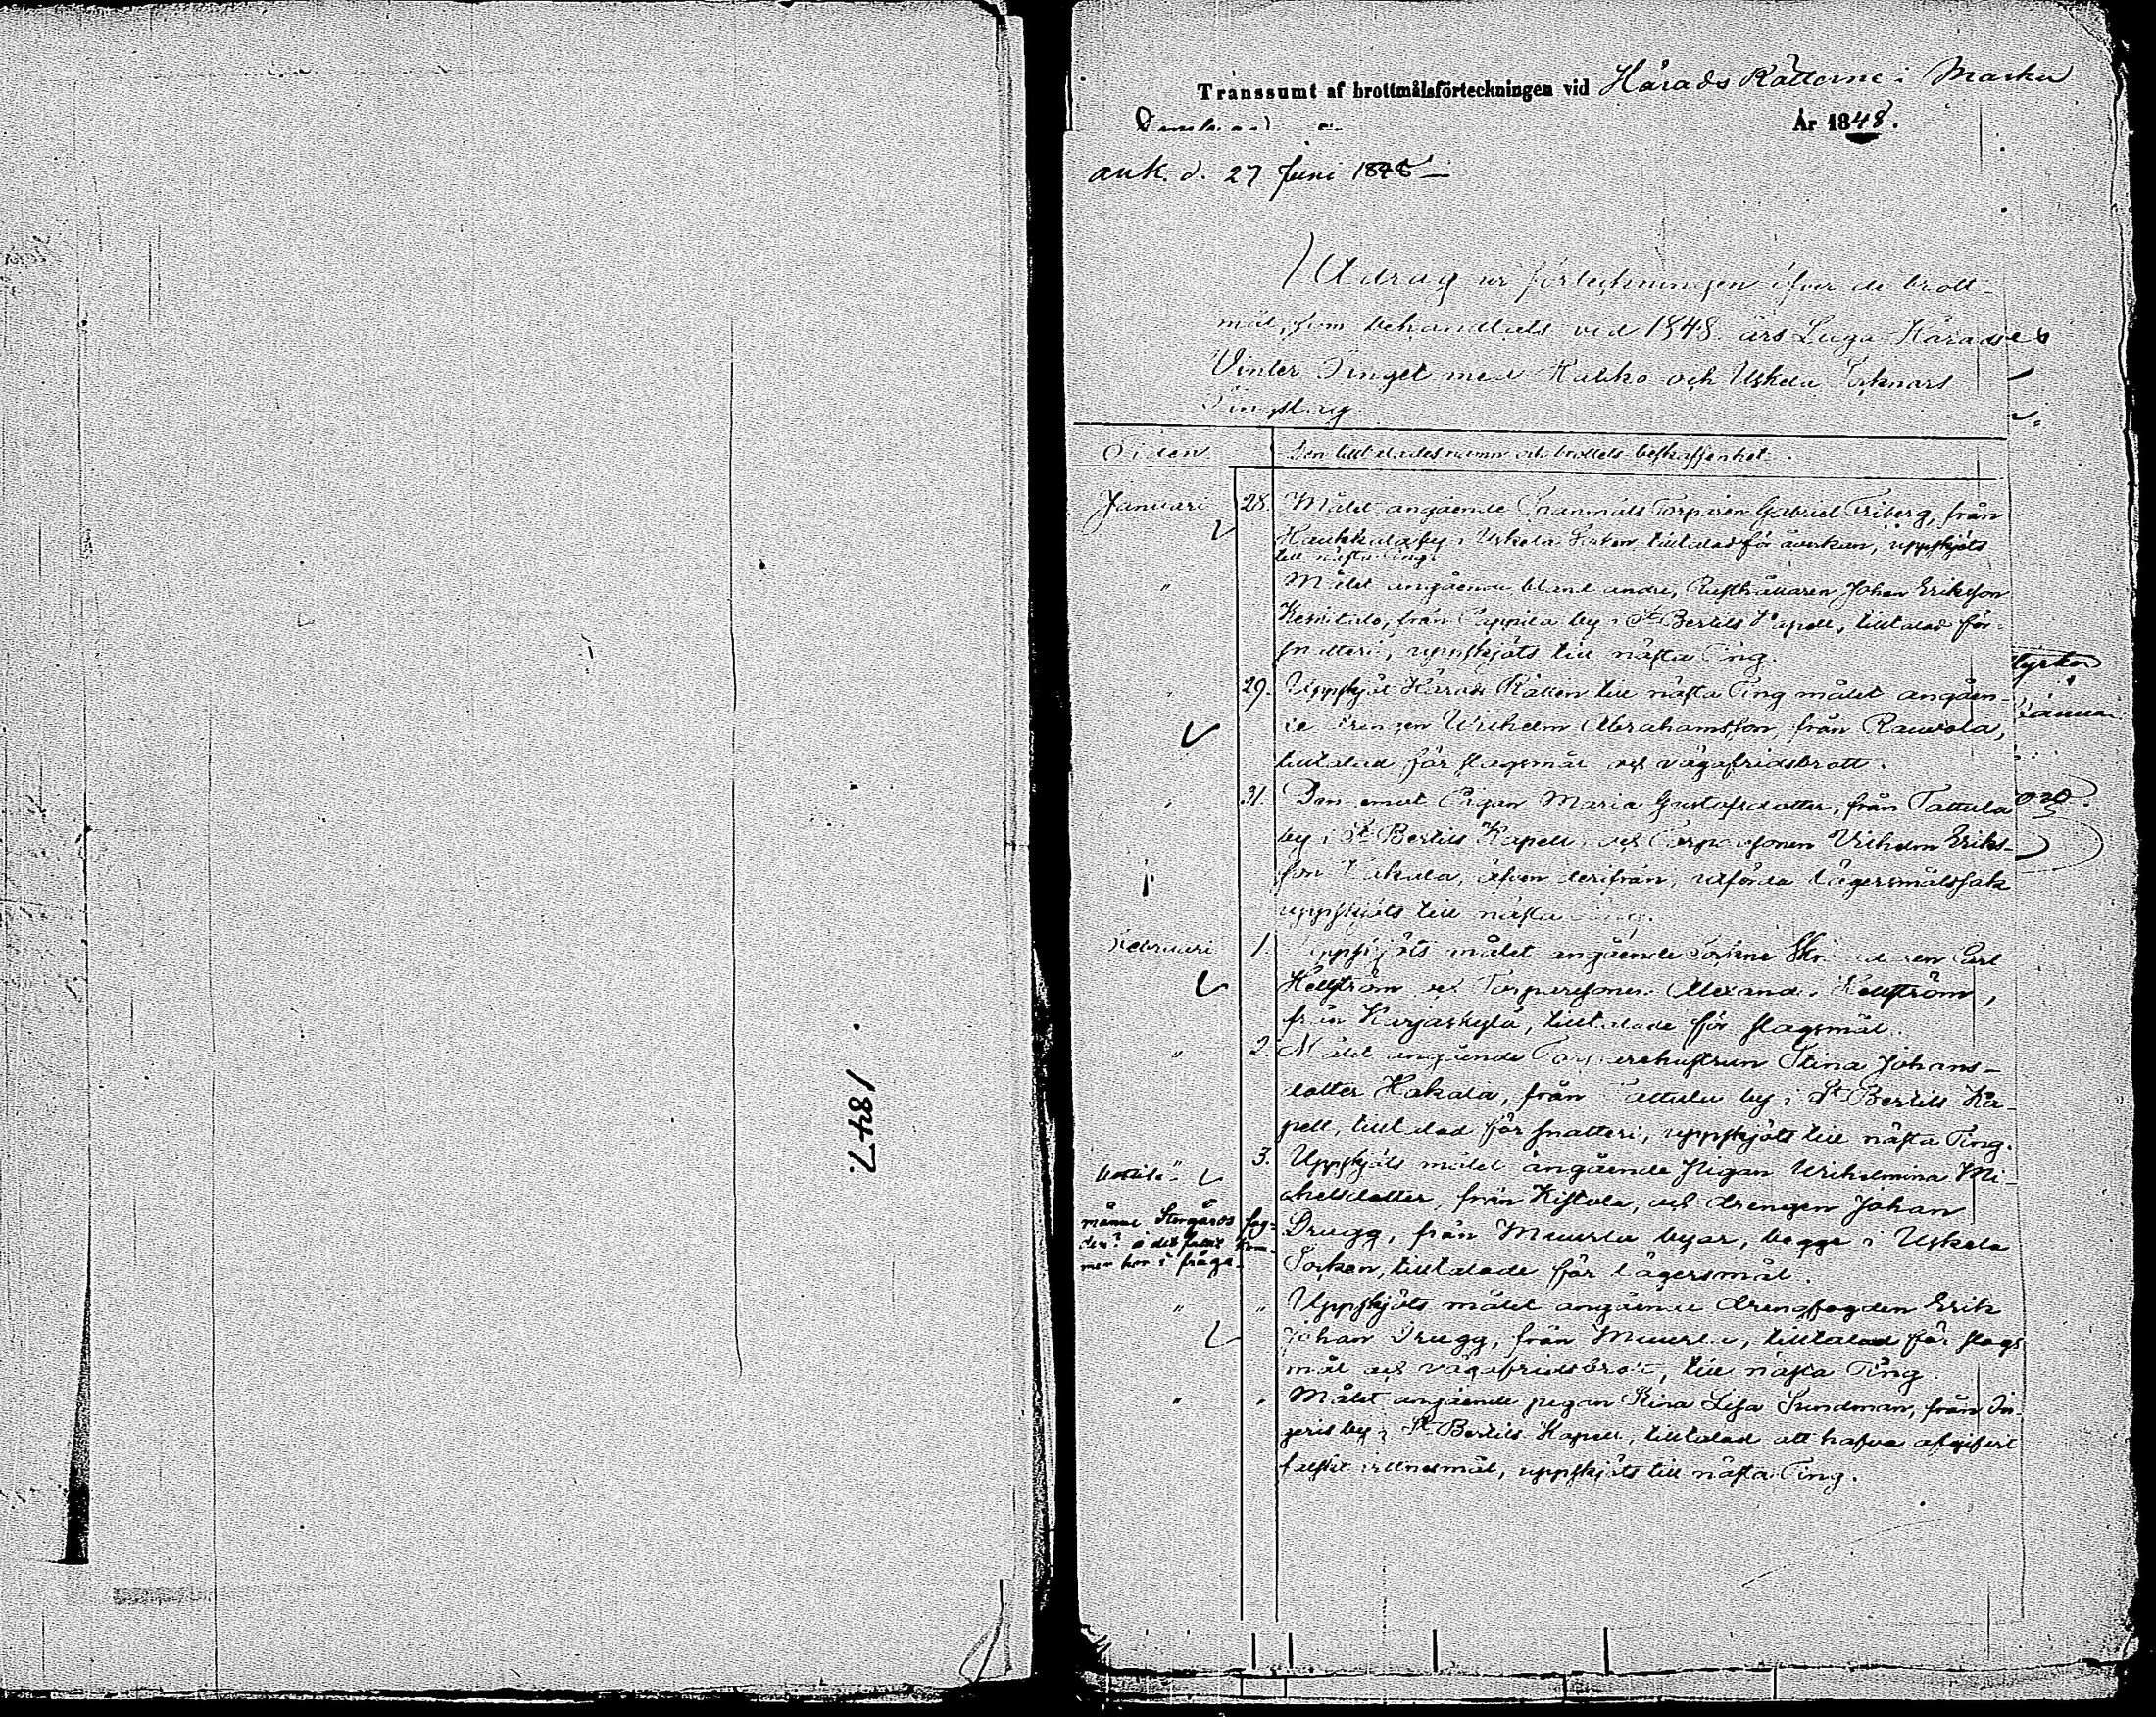 1847.
Transsumt af brottmålsförteckningen vid Härads Rätterne i Masku
År 1848.
ank. d. 27 Juni 1848
Utdrag ur förteckningen öfver de brott-
mål, som behandlats vid 1848 års Laga Härades
Vinter Tinget med Halikko och Uskela Socknars
Tingslag.
Tiden
Den tilltalades namn och brottets beskaffenhet.
Januari 28. Målet angående Torparen Gabriel Friberg, från
by i Uskela Socken, tilltalad för åverkan, uppskjöts
till nästa Ting.
" Målet angående bland andre, Rusthållaren Johan Eriksson
Kesnitalo, från Pappila by i St Bertils Kapell, tilltalad för
snatteri, uppskjöts till nästa Ting.
" 29. Uppskjöt Härads Rätten till nästa Ting målet angåen-
de drengen Wilhelm Abrahamsson, från Rauvola,
tilltalad för slagsmål och vägafridsbrott.
" 31. Den emot Pigan Maria Gustafsdotter, från Tattula
by i St Bertils Kapell, och Torparesonen Wilhelm Eriks-
son äfven derifrån, utförda lägersmålssak
uppskjöts till nästa Ting.
Februari 1. Uppskjöts målet angående Sockne Carl
Hellström och Torparesonen Alexander Hellström,
från Karjaskylä, tilltalade för slagsmål.
" 2. Målet angående Torparehustrun Stina Johans-
dotter Hakala, från Tattula by i St Bertils Ka-
pell, tilltalad för snatteri, uppskjöts till nästa Ting.
" 3. Uppskjöts målet angående Pigan Wilhelmina Mi-
chelsdotter, från Kistola, och drengen Johan
månne Storgårds fog-
den?
men hon i fråga.
Drugg, från Muurla byar, begge i Uskela
Socken, tilltalade för lägersmål.
" " Uppskjöts målet angående drengfogden Erik
Johan Drugg, från Muurla, tilltalad för slags
mål och vägafridsbrott, till nästa Ting.
" " Målet angående pigan Stina Lisa Sundman, från In-
geris by i St Bertils Kapell, tilltalad att hafva afgifvit
falskt vittnesmål, uppskjöts till nästa Ting.